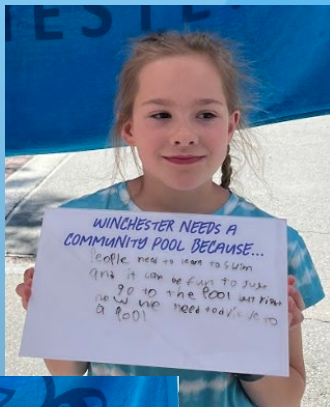 WINCHESTER NEEDS A
COMMUNITY POOL BECAUSE...
People need to learn to swim
and it can be fun to just
go to the Pool but right
now we need to drive to
a Pool